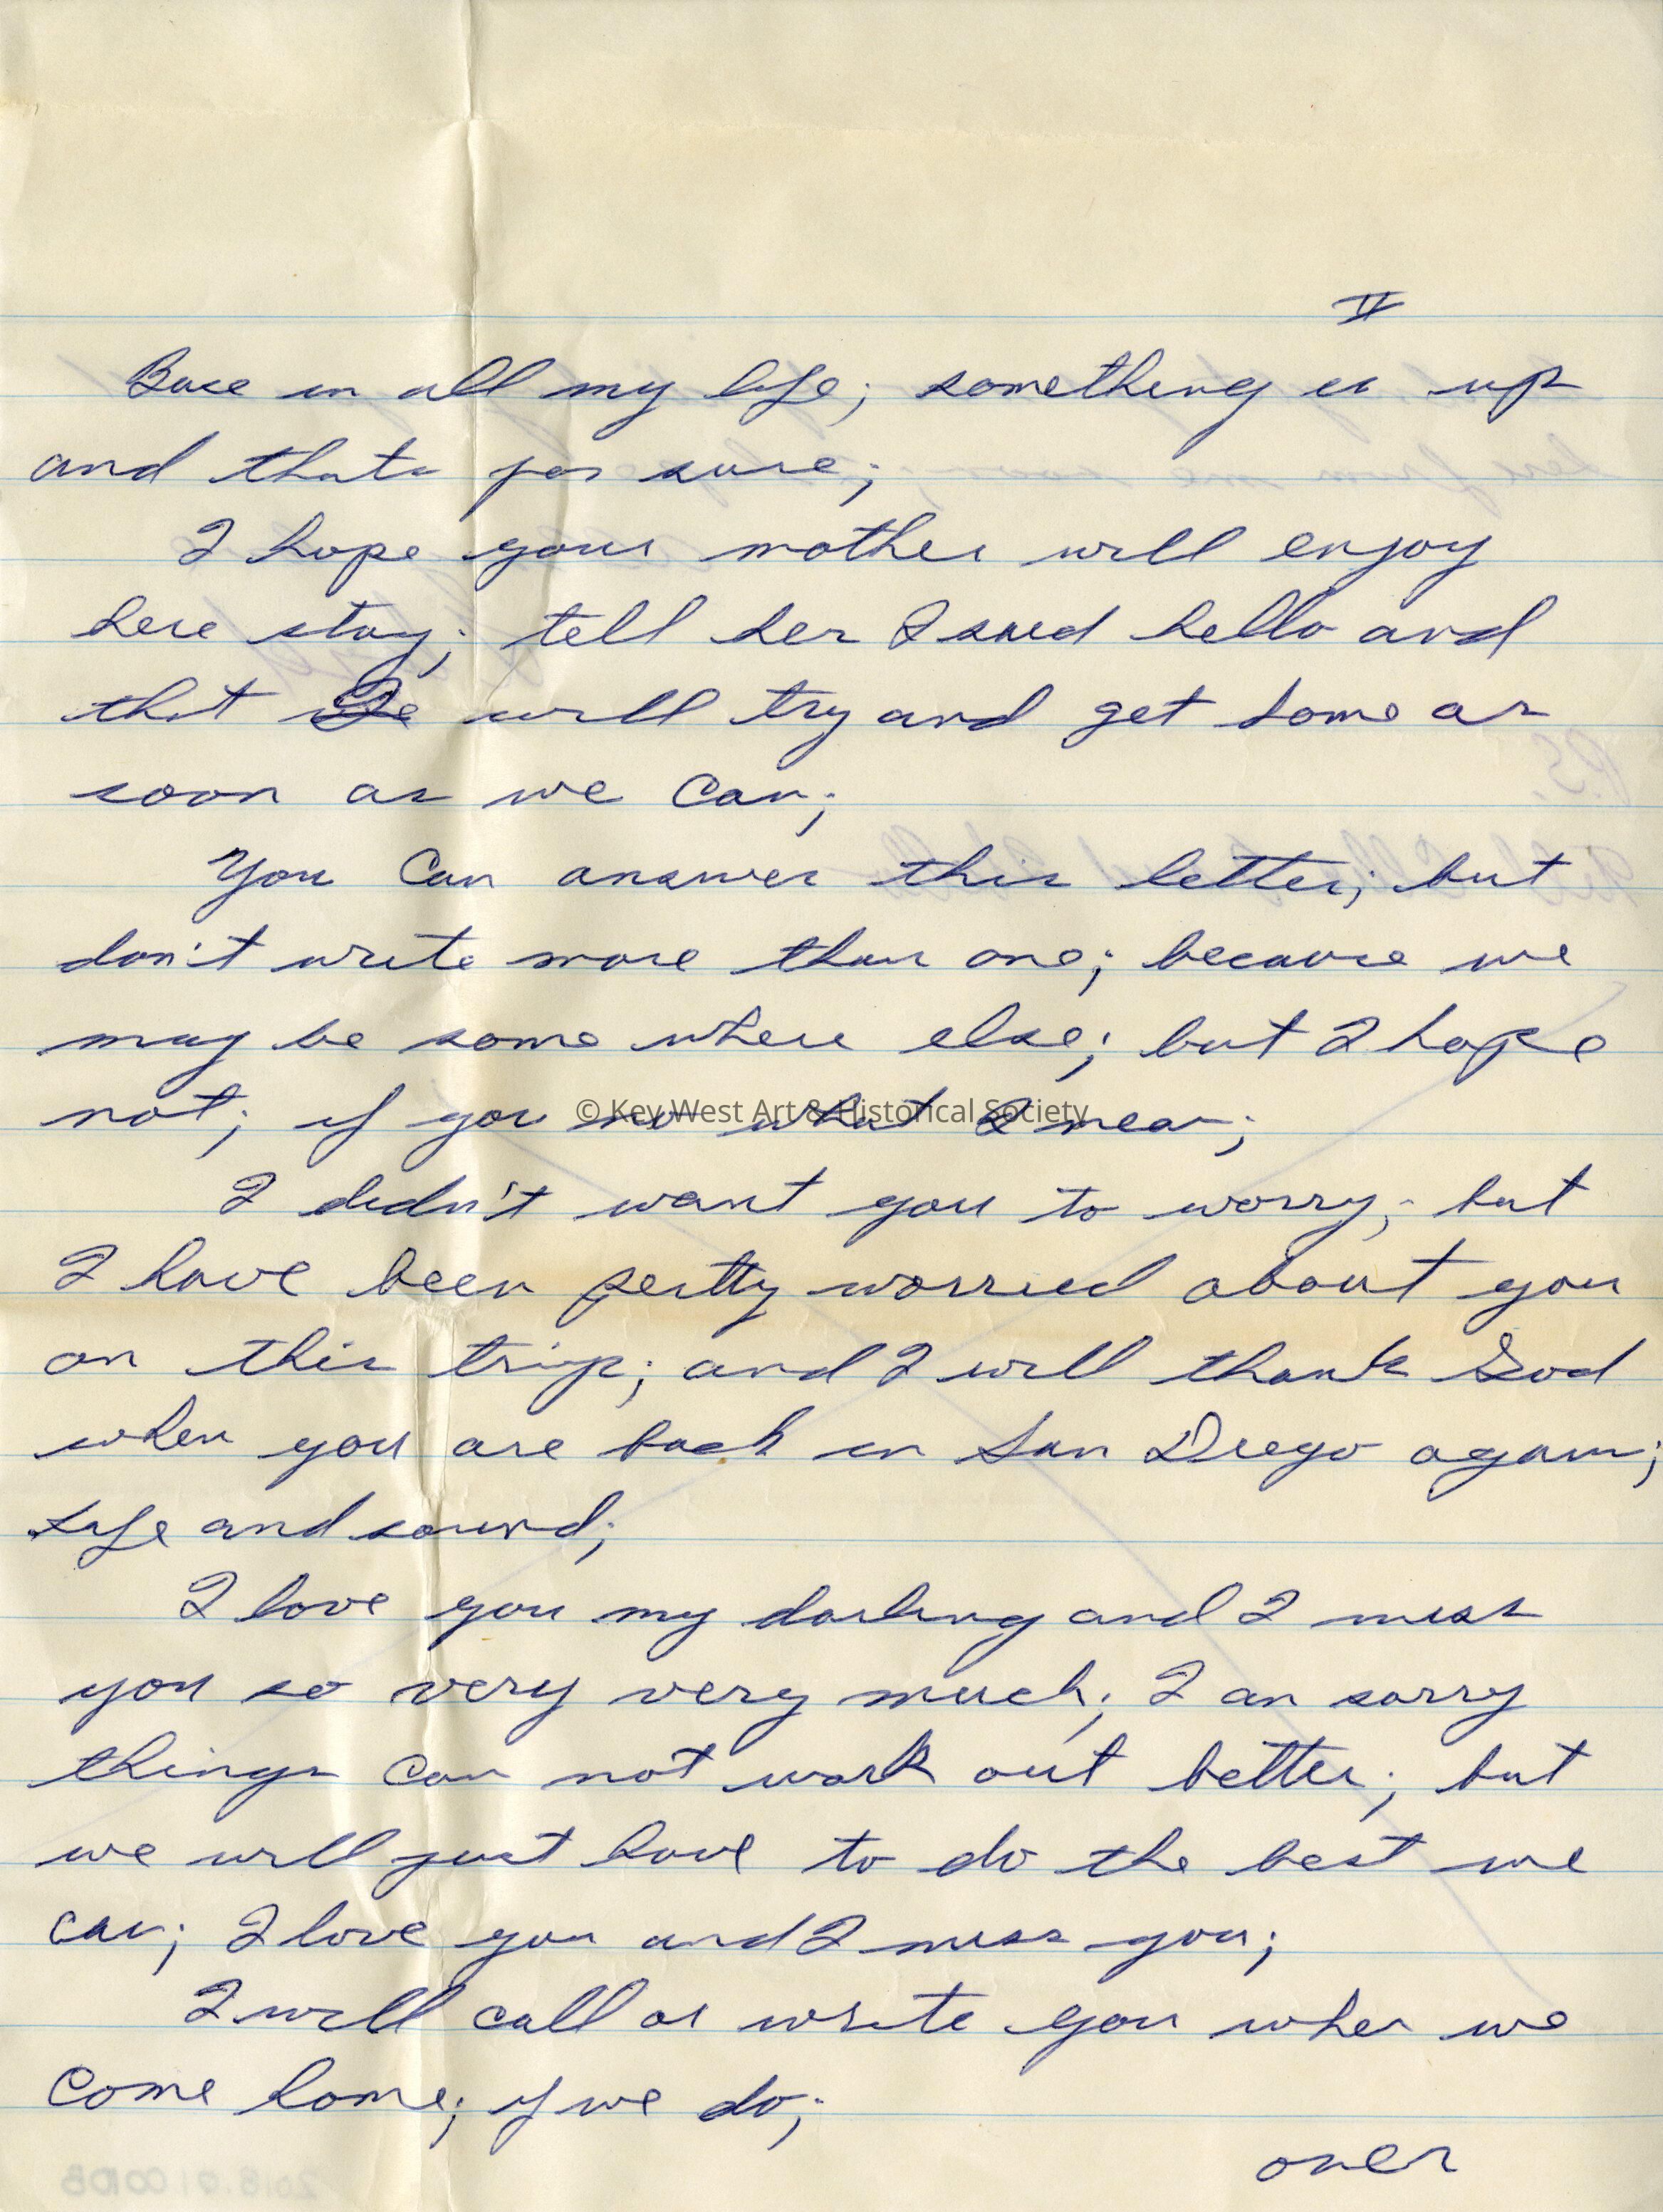 V
Base in all my life; something is up
and thats for sure;
I hope your mother will enjoy
here stay; tell her I said hello and
that we will try and get home as
soon as we can;
You can answer this letter; but
don't write more than one; because we
may be some where else; but I hope
not; if you no what I mean;
© Key West Art & Historical Society
I didn't want you to worry; but
I have been pertty worried about you
on this trip; and I will thank God
when you are back in San Diego again;
safe and sound;
I love you my darling and I miss
you so very very much; I an sorry
things can not work out better; but
we will just have to do the best we
can; I love you and I miss you;
I will call or write you when we
come home; if we do;
over